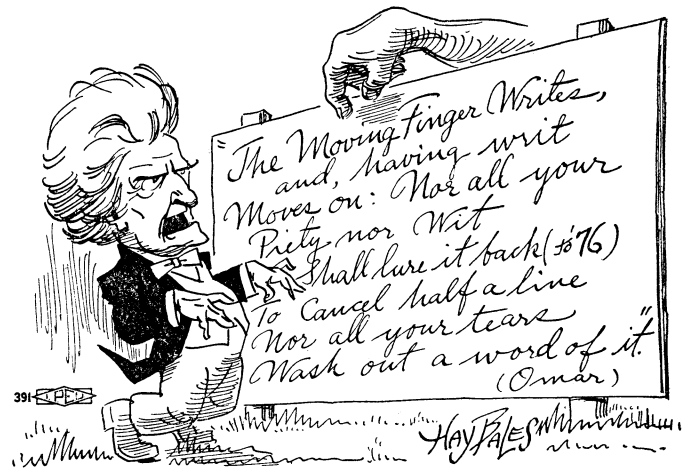 "The Moving Finger Writes,
and, having writ
Moves on: Nor all your
Piety nor Wit
Shall lure it back (to '76)
To Cancel half a line
Nor all your tears
Wash out a word of it."
(Omar)
391
HAY PALES